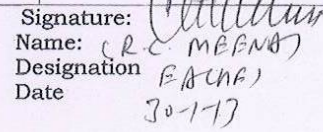 Signature:
Name: (R.C. MEENA)
Designation
Date 30-1-13